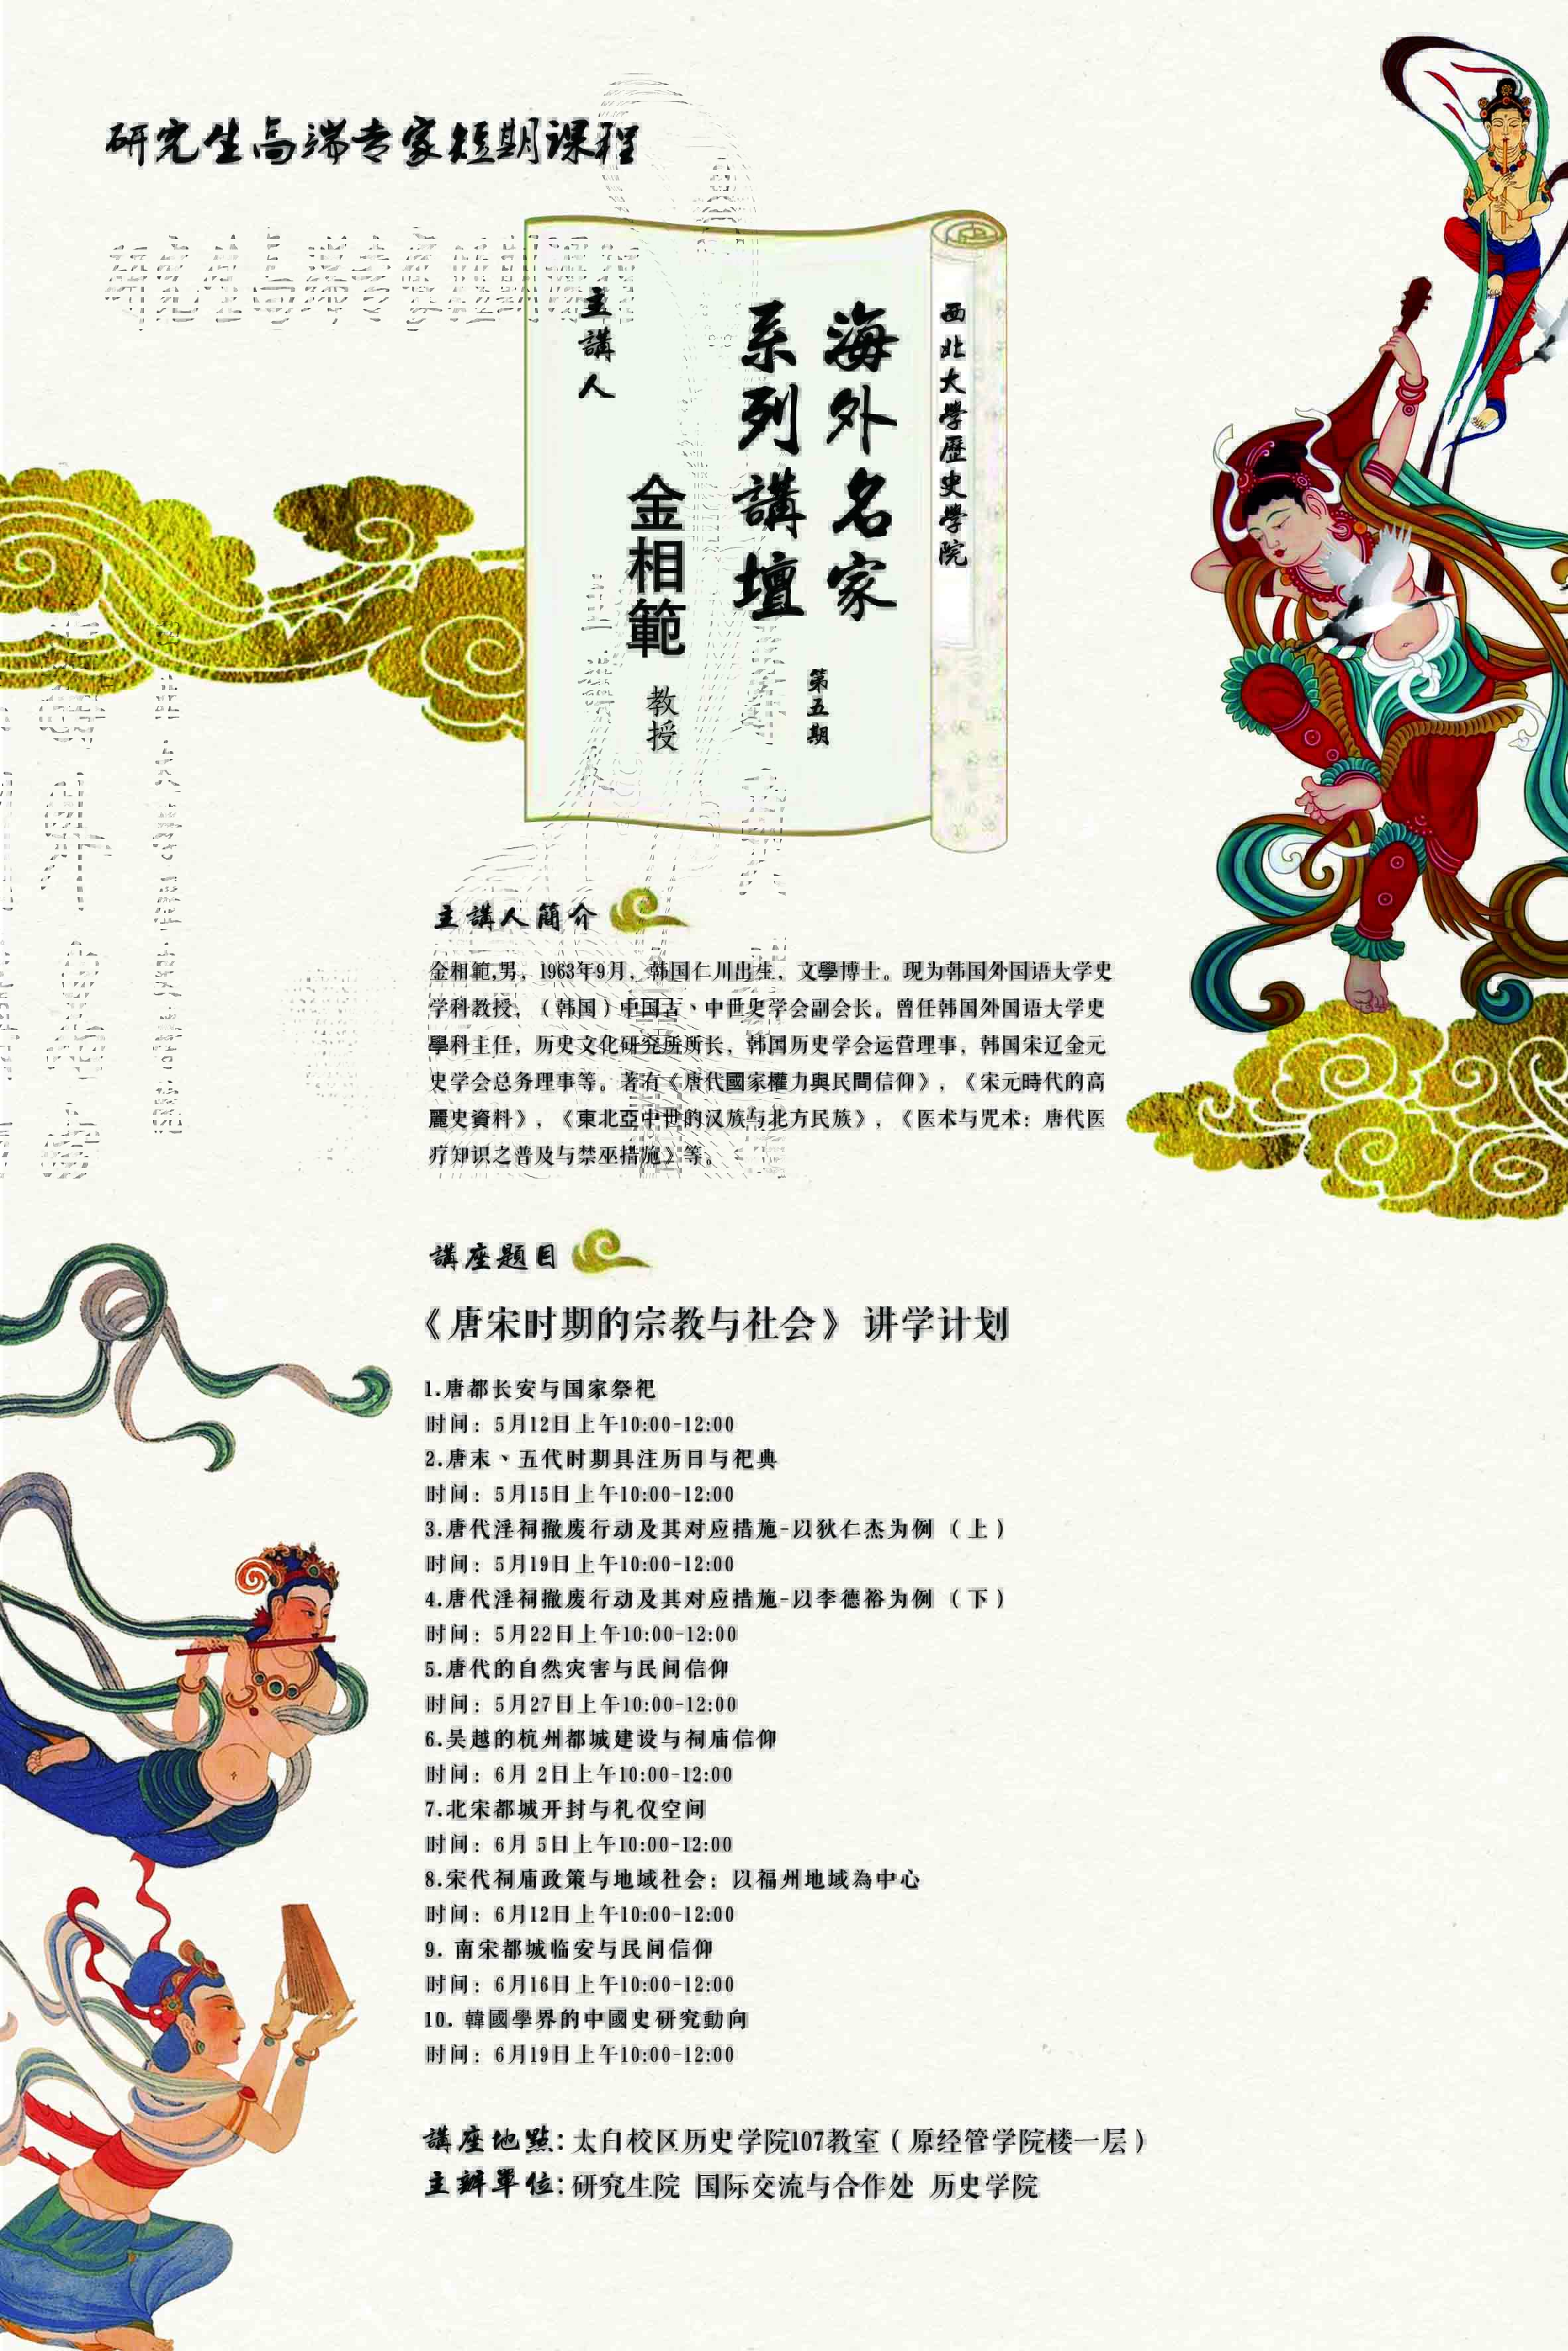 研究生高端专家短期课程
西北大學歷史學院
海外名家
系列講壇
第五期
主講人
金相範
教授
主講人簡介
金相範,男，1963年9月，韩国仁川出生，文學博士。现为韩国外国语大学史
学科教授，（韩国）中国古、中世史学会副会长。曾任韩国外国语大学史
學科主任，历史文化研究所所长，韩国历史学会运营理事，韩国宋辽金元
史学会总务理事等。著有《唐代國家權力與民間信仰》，《宋元時代的高
麗史資料》，《東北亞中世的汉族与北方民族》，《医术与咒术：唐代医
疗知识之普及与禁巫措施》等。
講座題目
《唐宋时期的宗教与社会》 讲学计划
1.唐都长安与国家祭祀
时间：5月12日上午10:00-12:00
2.唐末、五代时期具注历日与祀典
时间：5月15日上午10:00-12:00
3.唐代淫祠撤废行动及其对应措施-以狄仁杰为例（上）
时间：5月19日上午10:00-12:00
4.唐代淫祠撤废行动及其对应措施-以李德裕为例（下）
时间：5月22日上午10:00-12:00
5.唐代的自然灾害与民间信仰
时间：5月27日上午10:00-12:00
6.吴越的杭州都城建设与祠庙信仰
时间：6月 2日上午10:00-12:00
7.北宋都城开封与礼仪空间
时间：6月 5日上午10:00-12:00
8.宋代祠庙政策与地域社会：以福州地域為中心
时间：6月12日上午10:00-12:00
9. 南宋都城临安与民间信仰
时间：6月16日上午10:00-12:00
10. 韓國學界的中國史研究動向
时间：6月19日上午10:00-12:00
講座地點:太白校区历史学院107教室（原经管学院楼一层）
主辦單位:研究生院 国际交流与合作处 历史学院